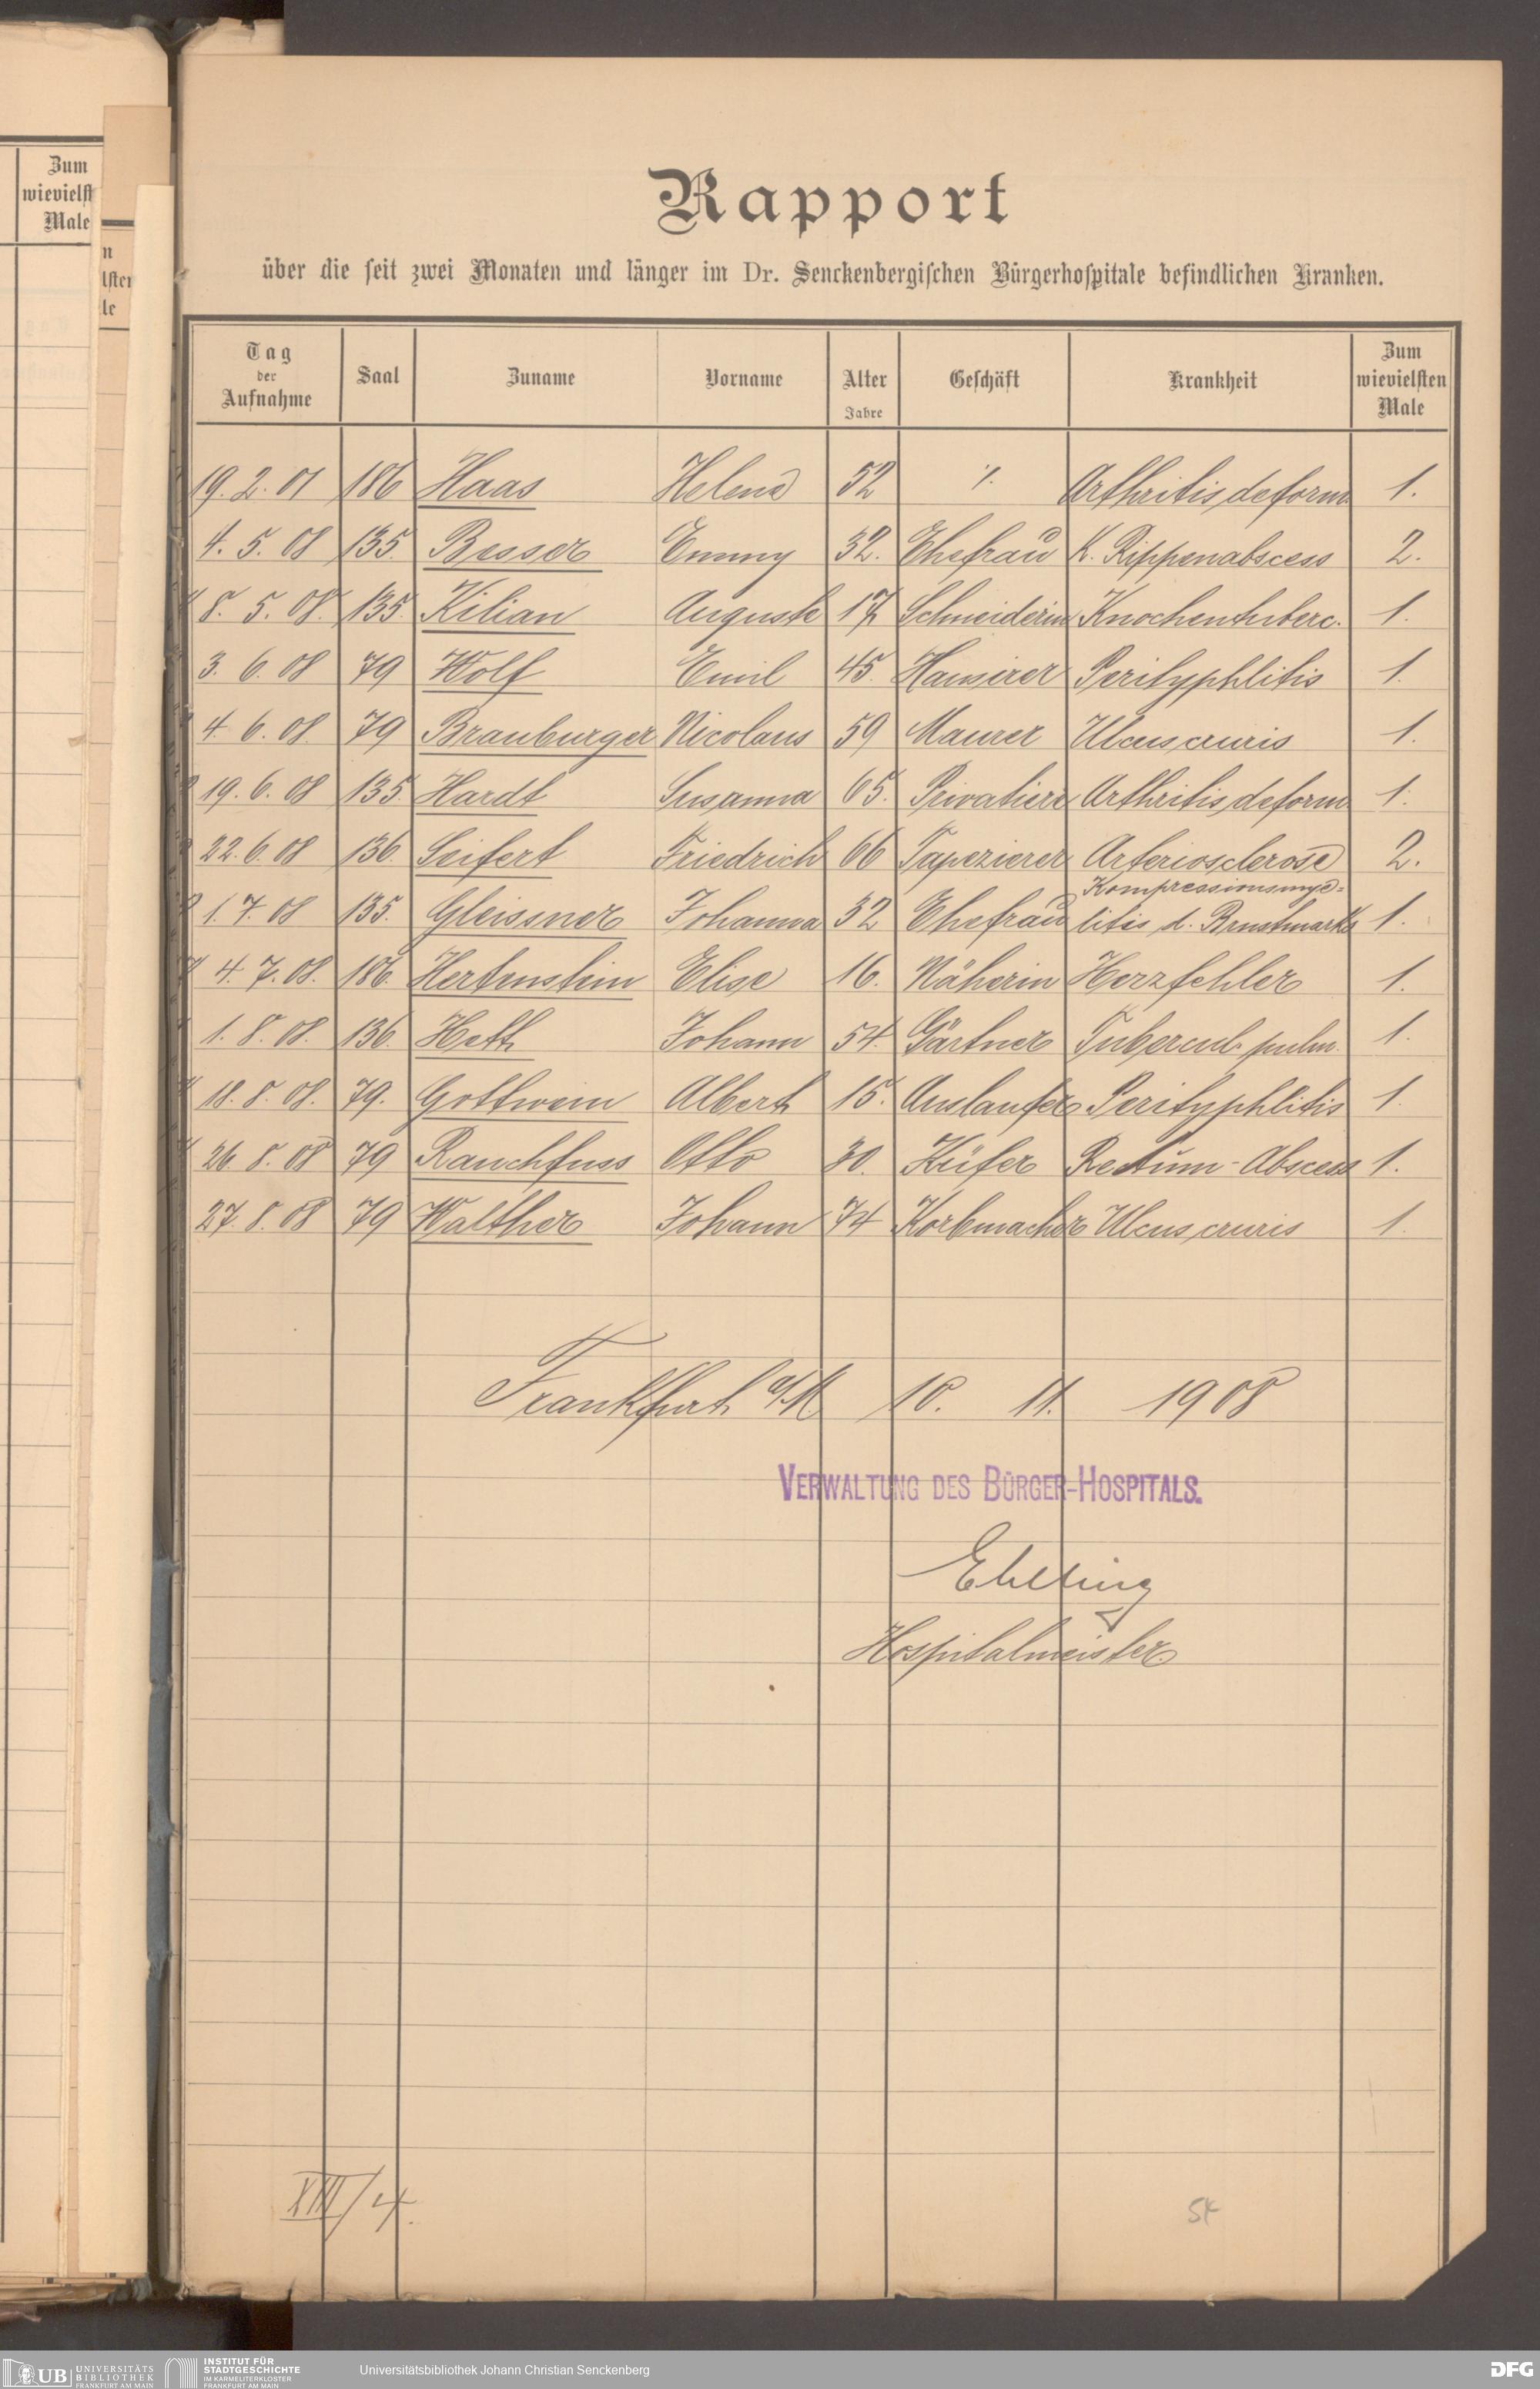 Zum
wievielst
Male
n
lsten
le
Rapport
über die seit zwei Monaten und länger im Dr. Senckenbergischen Bürgerhospitale befindlichen Kranken.
Tag der Aufnahme Saal Zuname Vorname Alter Jahre Geschäft Krankheit Zum wievielsten Male
19. 2. 01 186 Haas Helene 52 ·/. Arthritis deform 1.
4. 5. 08 135. Besser Emmy 32. Ehefrau K. Rippenabscess 2.
8. 5. 08. 135 Kilian Auguste 17 Schneiderin Knochentuberc. 1.
3. 6. 08 79 Wolf Emil 45. Hausirer Perityphlitis 1.
4. 6. 08. 79 Brauburger Nicolaus 59 Maurer Ulcus cruris 1.
19. 6. 08 135. Hardt Susanna 65. Privatiere Arthritis deform 1.
22. 6. 08 136. Seifert Friedrich 66 Tapezierer Arteriosclerose 2.
Kompressionsmye-
1. 7. 08 135. Gleissner Johanna 32 Ehefrau litis d. Brustmarks 1.
4. 7. 08. 186. Hertenstein Elise 16. Näherin Herzfehler 1.
1. 8. 08. 136. Heth Johann 54. Gärtner Tubercul. pulm. 1.
18. 8. 08. 79. Gottwein Albert 15. Auslaufer Perityphlitis 1.
26. 8. 08 79 Rauchfuss Otto 30. Küfer Rectum-Abscess 1.
27. 8. 08 79 Walther Johann 74 Korbmacher Ulcus cruris 1.
Frankfurt a/M 10. 11. 1908
VERWALTUNG DES BÜRGER-HOSPITALS.
Ebeling
Hospitalmeister
XIII/4.
54
UB UNIVERSITÄTS BIBLIOTHEK FRANKFURT AM MAIN
INSTITUT FÜR STADTGESCHICHTE IM KARMELITERKLOSTER FRANKFURT AM MAIN
Universitätsbibliothek Johann Christian Senckenberg
DFG